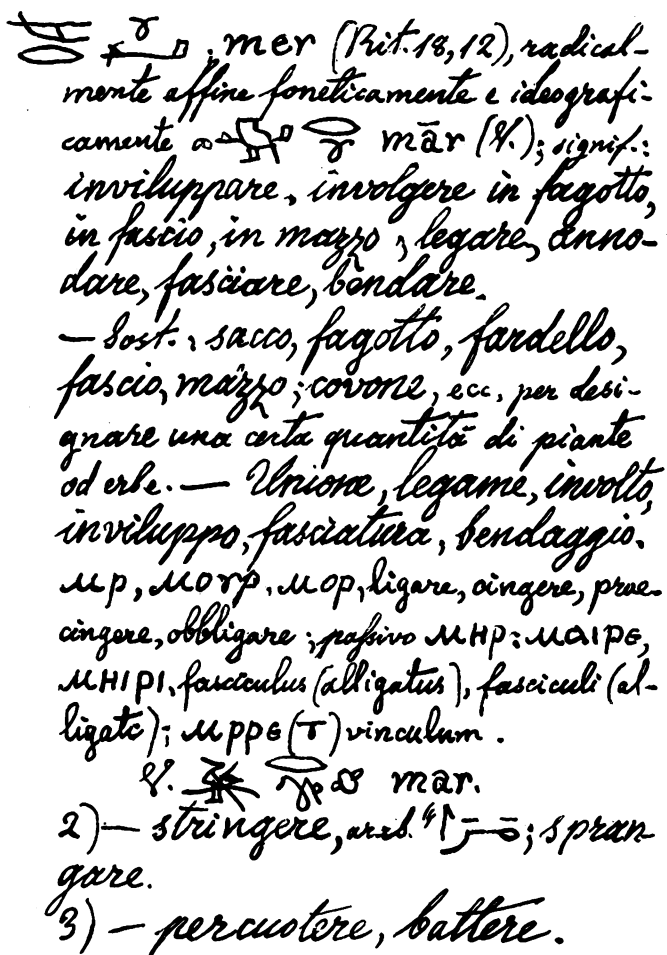 mer (Rit. 18, 12), radical-
mente affine foneticamente e ideografi-
camente a mār (V.); signif.:
inviluppare, involgere in fagotto,
in fascio, in mazzo, legare, anno-
dare, fasciare, bendare.
— Sost., sacco, fagotto, fardello,
fascio, mazzo; covone, ecc, per desi-
gnare una certa quantità di piante
od erbe. — Unione, legame, involto,
inviluppo, fasciatura, bendaggio.
ⲙⲣ, ⲙⲟⲩⲣ, ⲙⲟⲣ, ligare, cingere, prae-
cingere, obbligare; passivo ⲙⲏⲣ: ⲙⲁⲓⲣⲉ,
ⲙⲏⲓⲣⲓ, fasciculus (alligatus), fasciculi (al-
ligati); ⲙⲣⲣⲉ (ⲧ) vinculum.
V. mār.
2) — stringere, spran-
gare.
3) — percuotere, battere.